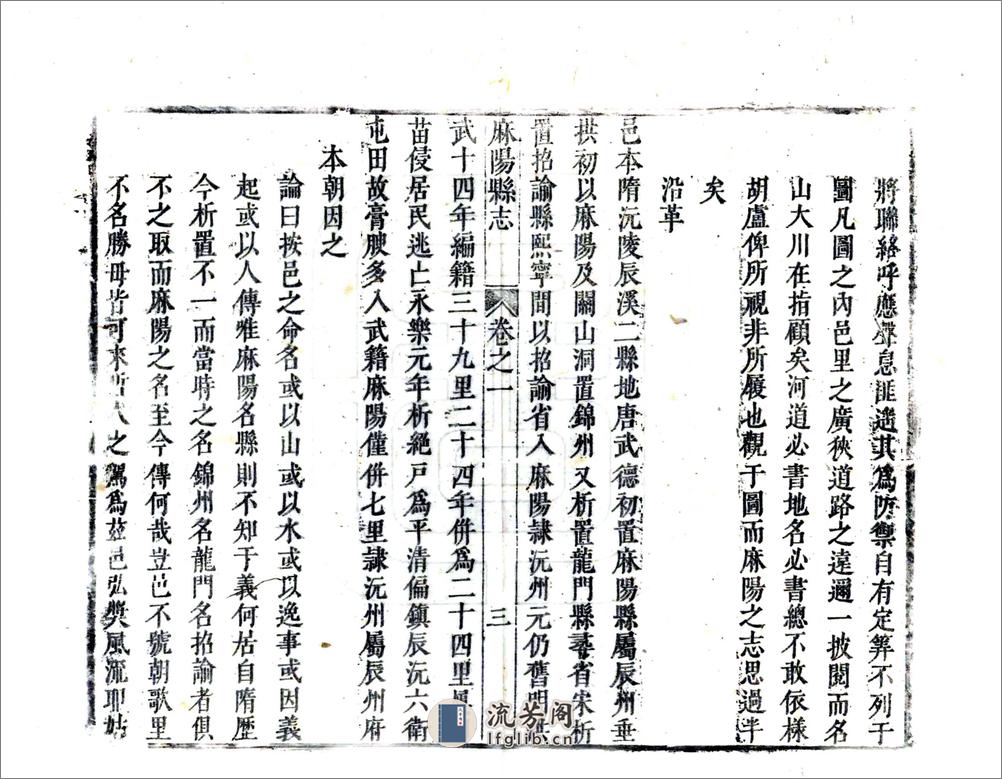 將聯絡呼應聲息匪遙其為防禦自有定筭不列于
圖凡圖之內邑里之廣狹道路之遠邇一披閱而名
山大川在指顧矣河道必書地名必書總不敢依樣
胡盧俾所視非所履也觀于圖而麻陽之志思過半
矣
沿革
邑本隋沅陵辰溪二縣地唐武德初置麻陽縣屬辰州垂
拱初以麻陽及開山洞置錦州又析置龍門縣尋省宋析
置招諭縣熙寧間以招諭省入麻陽隸沅州元仍舊明
麻陽縣志
卷之一
三
武十四年編籍三十九里二十四年併爲二十四里
苗侵居民逃亡永樂元年析絕戶爲平清偏鎮辰沅六衛
屯田故膏腴多入武籍麻陽僅併七里隸沅州屬辰州府
本朝因之
論曰按邑之命名或以山或以水或以逸事或因義
起或以人傳惟麻陽名縣則不知于義何居自隋歷
今析置不一而當時之名錦州名龍門名招諭者俱
不之取而麻陽之名至今傳何哉豈邑不號朝歌里
不名勝母皆可來之駕爲茲邑弘奬風流耶姑
流芳阁
lfglib.cn